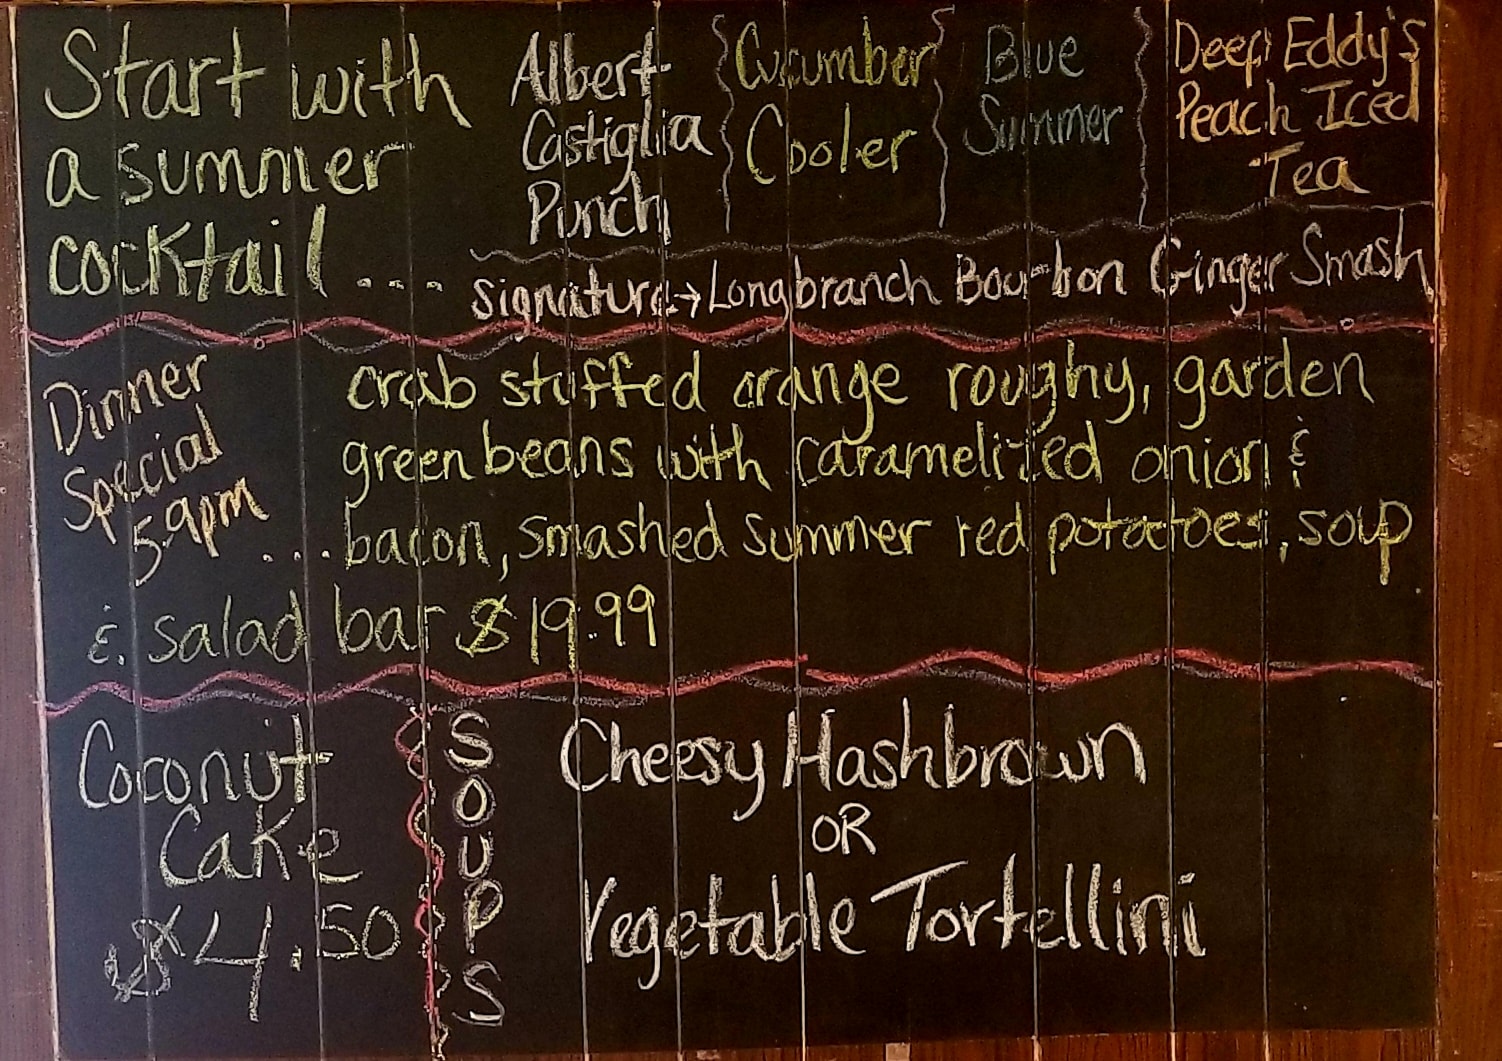 Start with
a summer
cocktail ....
Albert
Castiglia
Punch
Cucumber
Cooler
Blue
Summer
Deep Eddy's
Peach Iced
Tea
Signature → Longbranch Bourbon Ginger Smash
Dinner
Special
5-9pm
crab stuffed orange roughy, garden
green beans with caramelized onion &
... bacon, smashed summer red potatoes, soup
& salad bar $19.99
Coconut
Cake
$4.50
SOUPS
Cheesy Hashbrown
OR
Vegetable Tortellini